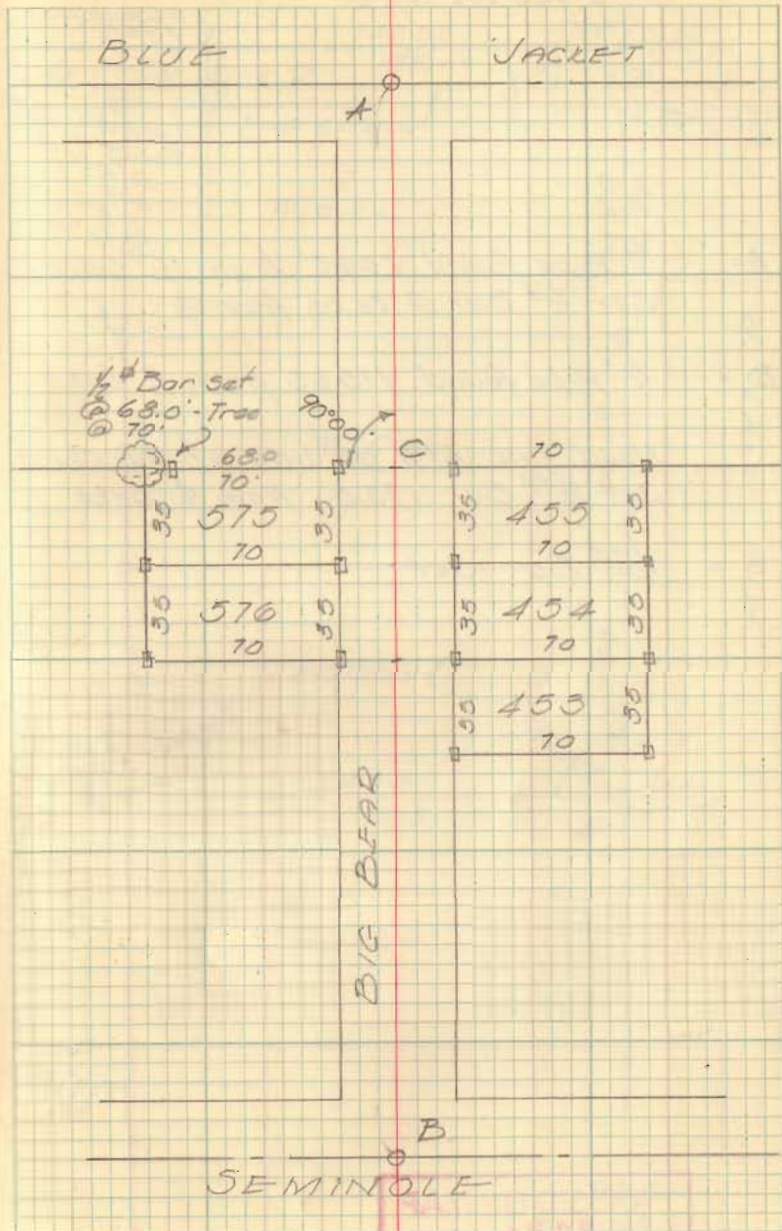 BLUE JACKET
A
1/2"ø Bar set
@ 68.0' - Tree
@ 70'
90°00'
C
68.0
70'
70
35 575 35
35 455 35
70
70
35 576 35
35 454 35
70
70
35 453 35
70
BIG BEAR
B
SEMINOLE